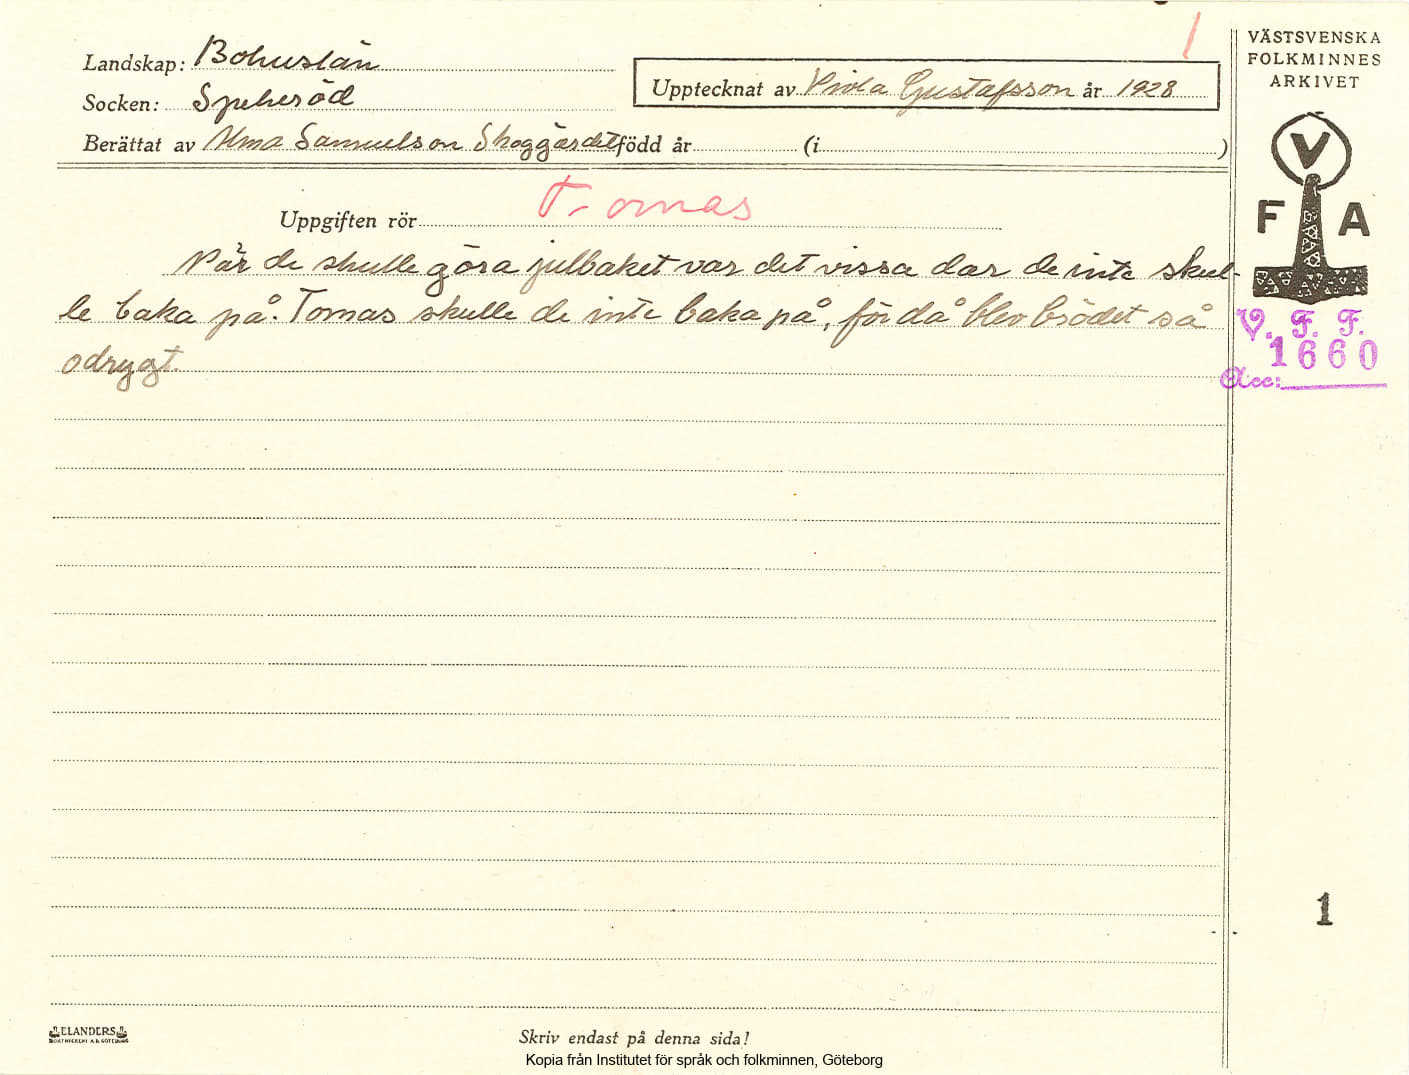 1
VÄSTSVENSKA
FOLKMINNES
ARKIVET
Landskap: Bohuslän
Socken: Spekeröd
Upptecknat av Viola Gustafsson år 1928
Berättat av Alma Samuelson Skoggärdet född år (i )
V
F A
Uppgiften rör T. omas
När de skulle göra julbaket var det vissa dar de inte skul-
le baka på. Tomas skulle de inte baka på, för då blev brödet så
odrygt.
V. F. F.
1660
Acc:
1
ELANDERS
BOKTRYCKERI A.B. GÖTEBORG
Skriv endast på denna sida!
Kopia från Institutet för språk och folkminnen, Göteborg